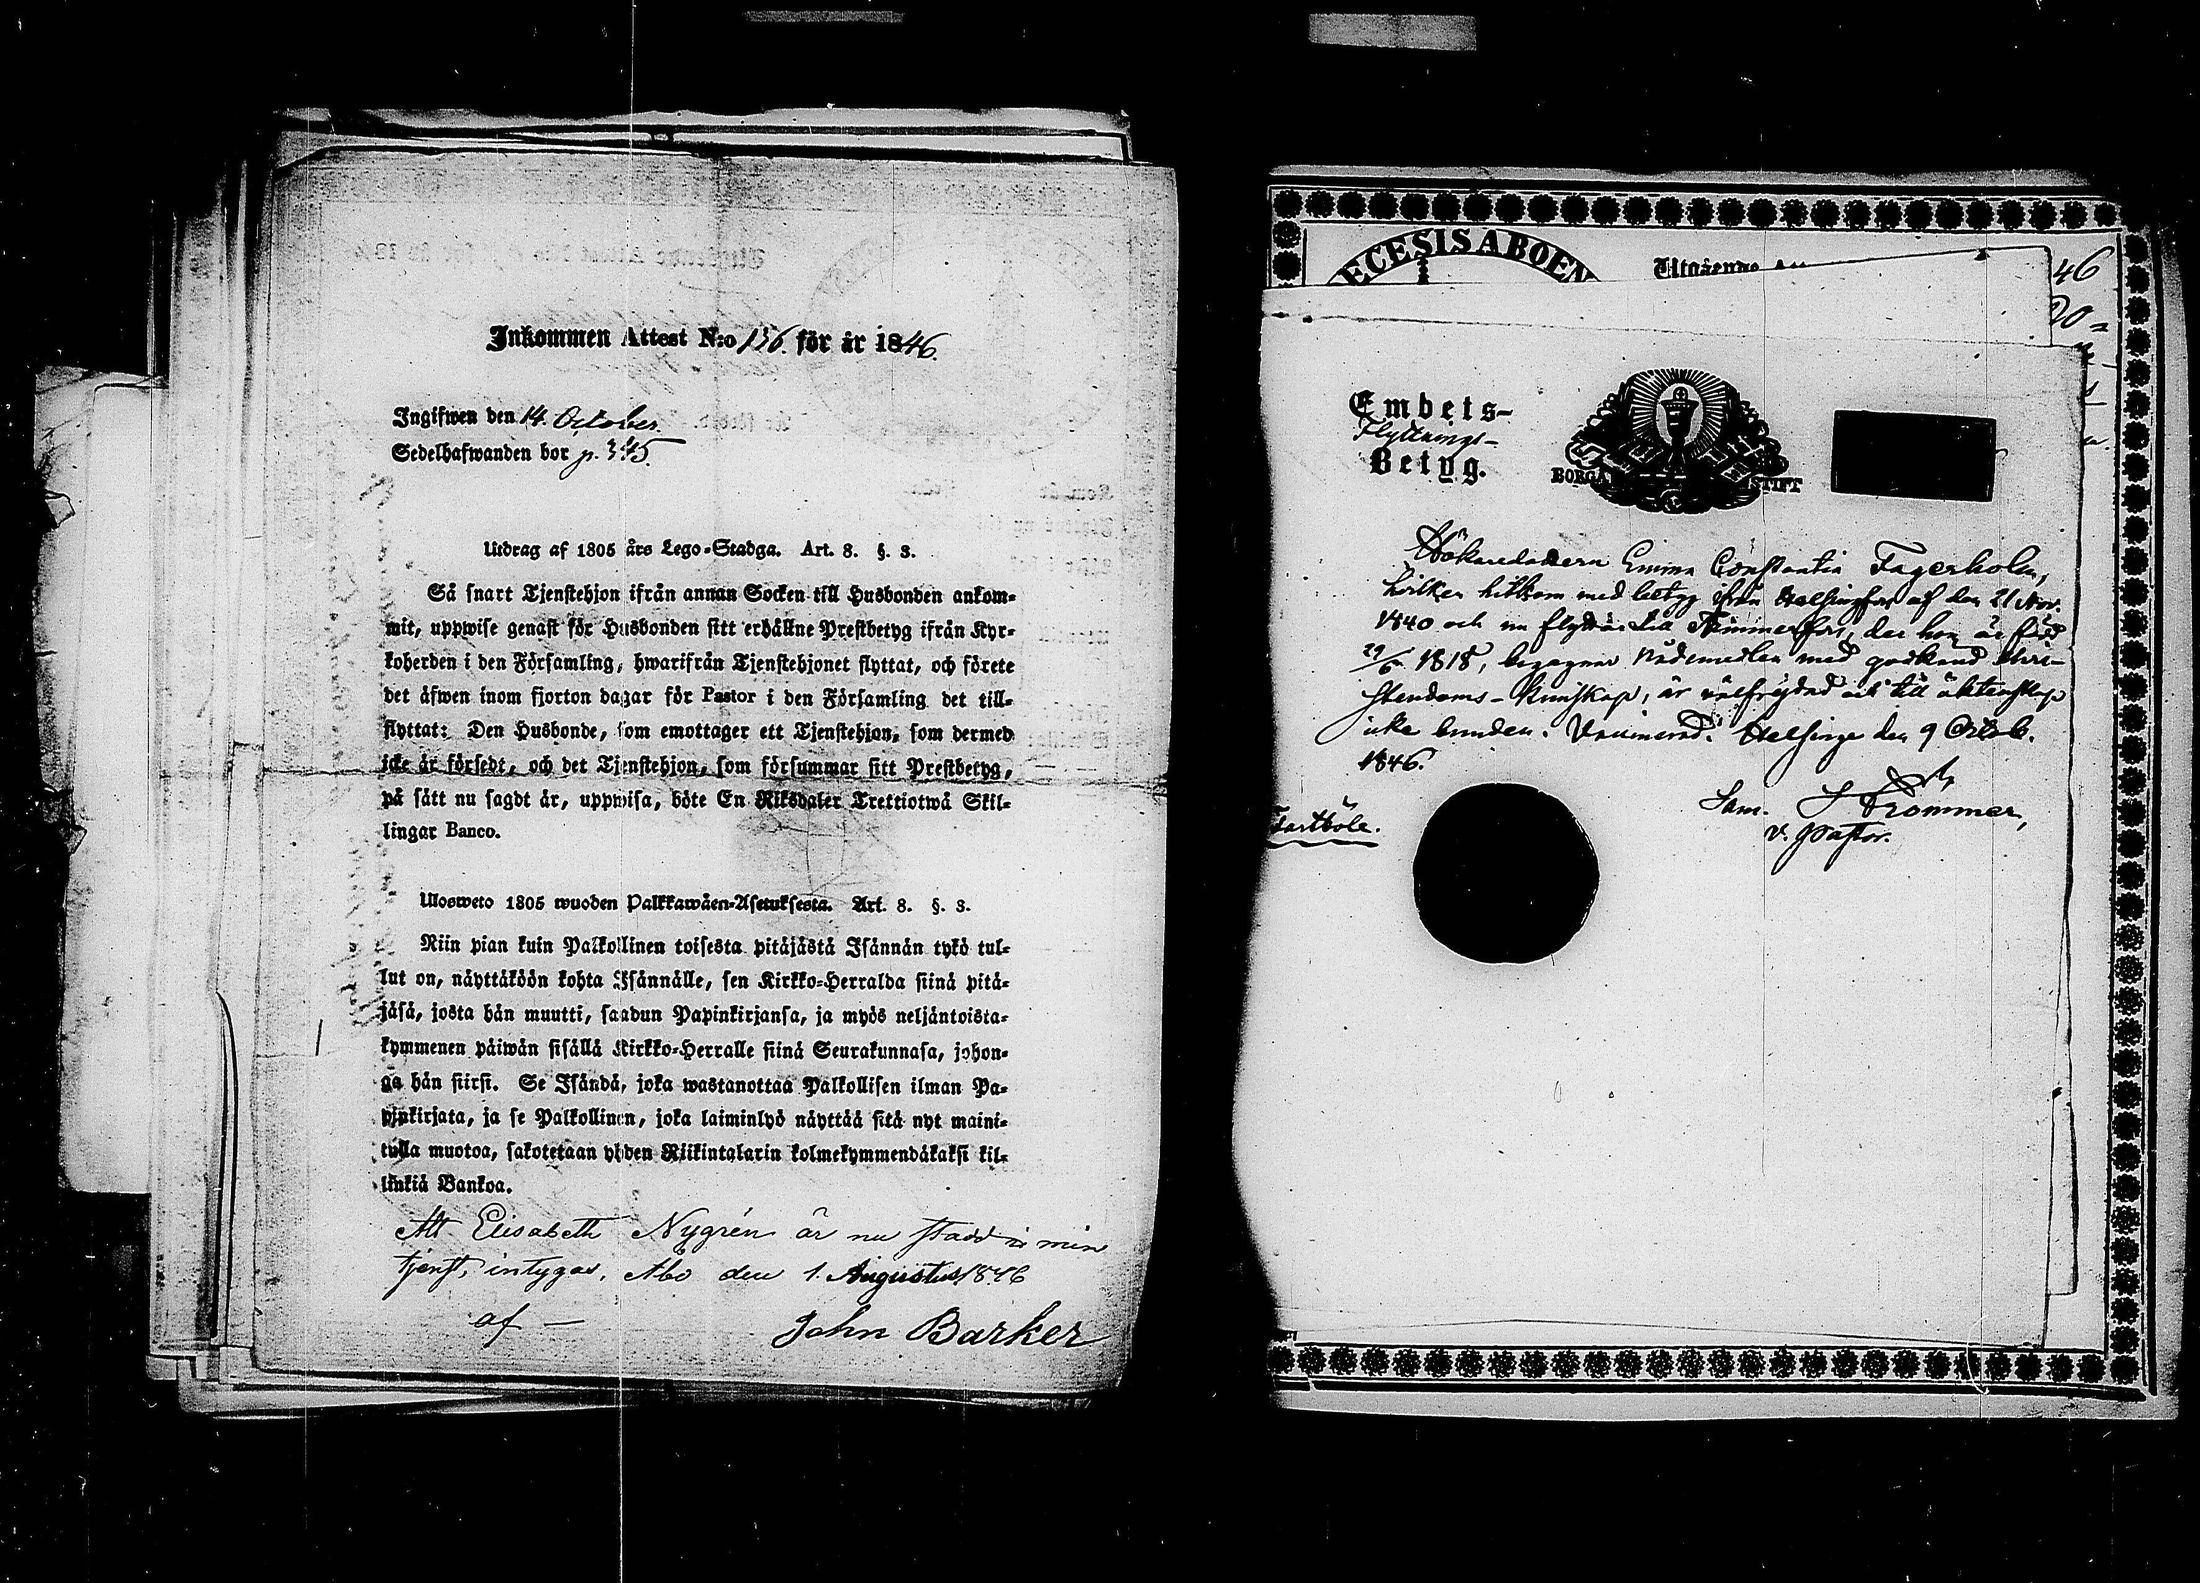 Inkommen Attest N:o 136. för år 1846.
Ingifwen den 14. October.
Sedelhafwanden bor p. 345.
Utdrag af 1805 års Lego-Stadga. Art. 8. §. 3.
Så snart Tjenstehjon ifrån annan Socken till Husbonden ankom-
mit, uppwise genast för Husbonden sitt erhållne Prestbetyg ifrån Kyr-
koherden i den Församling, hwarifrån Tjenstehjonet flyttat, och förete
det äfwen inom fjorton dagar för Pastor i den Församling det till-
flyttat: Den Husbonde, som emottager ett Tjenstehjon, som dermed
icke är försedt, och det Tjenstehjon, som försummar sitt Prestbetyg,
på sätt nu sagdt är, uppwisa, böte En Riksdaler Trettiotwå Skil-
lingar Banco.
Ulosweto 1805 wuoden Palkkawäen-Asetuksesta. Art. 8. §. 3.
Niin pian kuin Palkollinen toisesta pitäjästä Isännän tykö tul-
lut on, näyttäköön kohta Isännälle, sen Kirkko-Herralda siinä pitä-
jäsä, josta hän muutti, saadun Papinkirjansa, ja myös neljäntoista-
kymmenen päiwän sisällä Kirkko-Herralle siinä Seurakunnasa, johon-
ga hän siirsi. Se Isändä, joka wastanottaa Palkollisen ilman Pa-
pinkirjata, ja se Palkollinen, joka laiminlyö näyttää sitä nyt maini-
tulla muotoa, sakotetaan yhden Riikintalarin kolmekymmendäkaksi kil-
linkiä Bankoa.
Att Elisabeth Nygrén är nu stadd i min
tjenst, intygas, Åbo den 1. Augustus 1846
af —
John Barker
ECESIS ABOEN
Utgående
46
20
Embets-
Flyttnings-
Betyg.
BORGÅ STIFT
Emma Constantia Fagerholm,
hvilken hitkom med betyg ifrån Helsingfors af den 21 Nov.
1840 och nu flyttar till Tammerfors, der hon är född
29/5 1818, begagnar nådemedlen med godkänd Chri-
stendoms-kunskap, är välfrejdad och till äktenskap
icke bunden. Vaccinerad. Helsinge den 9 Octob.
1846.
Sam. J Frommer,
v. Pastor.